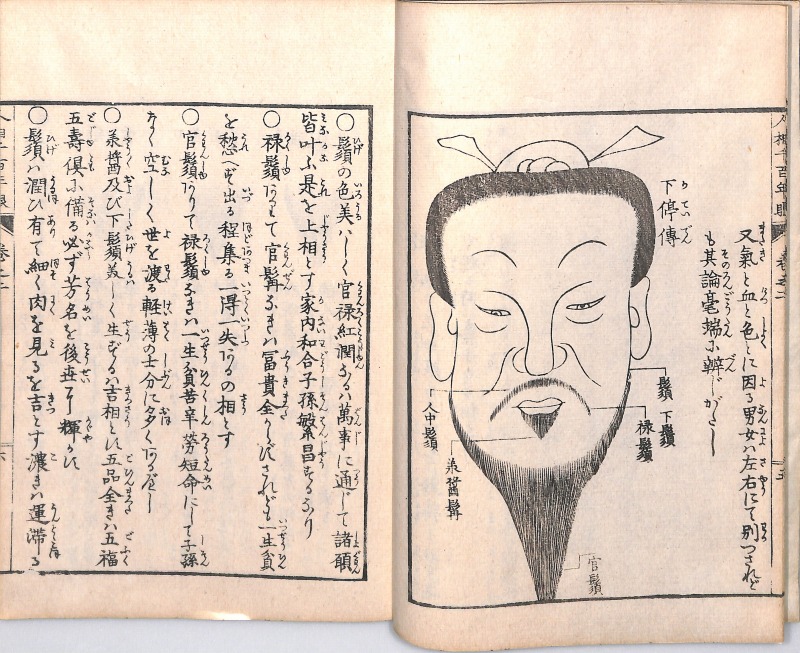 又氣と血と色とに因る男女ハ左右にて別つされど
も其論毫端に辨じがたし
下停傳
鬚
下鬚
禄鬚
人中鬚
承醤髯
官鬚
○鬚の色美ハしく官禄紅潤なるハ萬事に通じて諸願
皆叶ふ是を上相とす家内和合子孫繁昌するなり
○禄鬚ありて官鬚なきハ冨貴全からずされども一生貧
を愁へず出る程集る一得一失あるの相とす
○官鬚ありて禄鬚なきハ一生貧苦辛労短命にして子孫
なく空しく世を渡る軽薄の士分に多くあるべし
○承醤及び下鬚美しく生ずるハ吉相とす五品全きハ五福
五壽倶に備る必ず芳名を後世に輝かす
○鬚ハ潤ひ有て細く肉を見るを吉とす濃きハ運滞る
人相千百年眼
巻之二
六